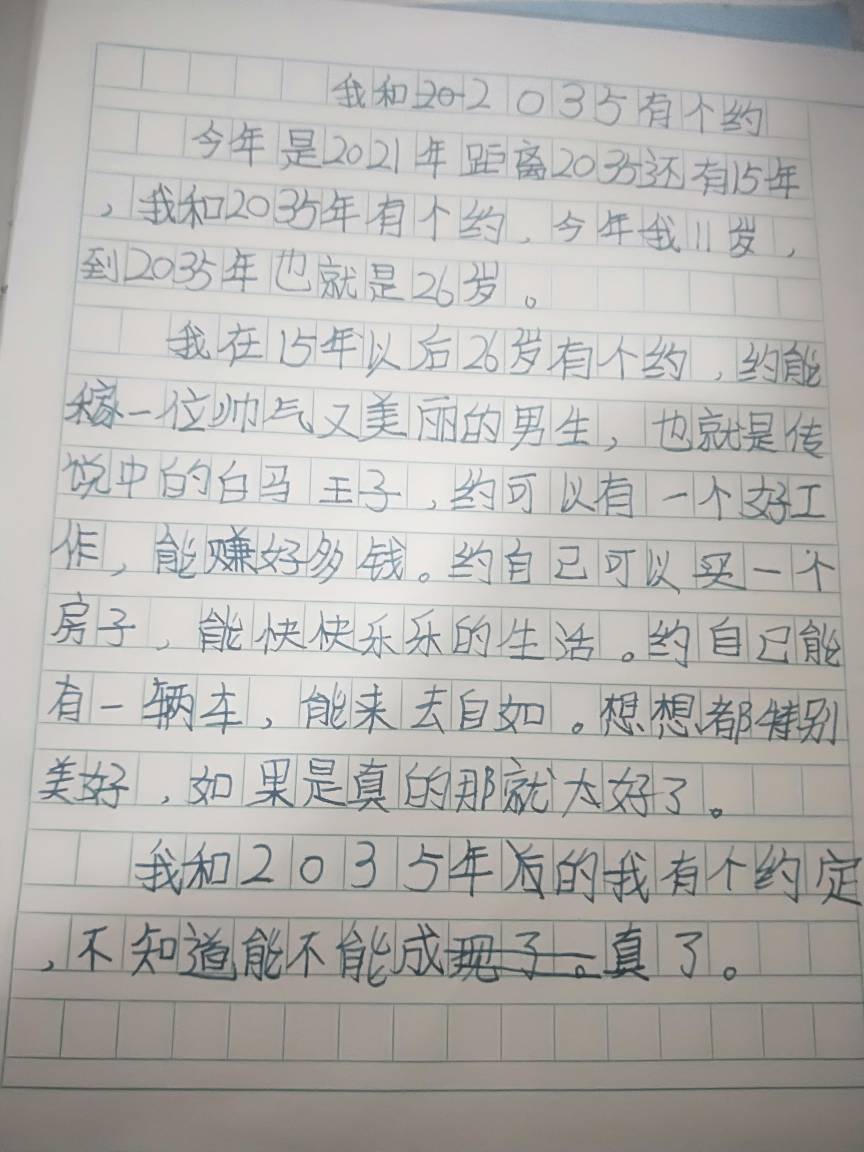 我和2035有个约
今年是2021年距离2035还有15年
，我和2035年有个约，今年我11岁，
到2035年也就是26岁。
我在15年以后26岁有个约，约能
稼一位帅气又美丽的男生，也就是传
说中的白马王子，约可以有一个好工
作，能赚好多钱。约自己可以买一个
房子，能快快乐乐的生活。约自己能
有一辆车，能来去自如。想想都特别
美好，如果是真的那就太好了。
我和2035年后的我有个约定
，不知道能不能成真了。